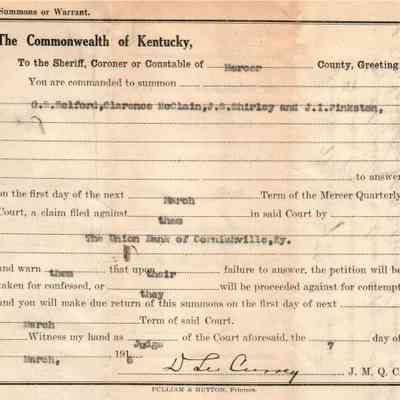 Summons or Warrant.
The Commonwealth of Kentucky,
To the Sheriff, Coroner or Constable of Mercer County, Greeting
You are commanded to summon
G.W.Belford,Clarence McClain,J.S.Shirley and J.I.Pinkston,
to answer
on the first day of the next March Term of the Mercer Quarterly
Court, a claim filed against them in said Court by
The Union Bank of Cornishville,Ky.
and warn them that upon their failure to answer, the petition will be
taken for confessed, or they will be proceeded against for contempt
and you will make due return of this summons on the first day of next
March Term of said Court.
Witness my hand as Judge of the Court aforesaid, the 7 day of
March, 191
D Lee Currey J. M. Q. C
PULLIAM & HUTTON, Printers.